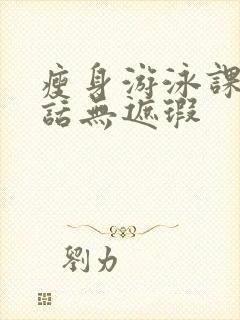 瘦身游泳課
話無遮瑕
劉力